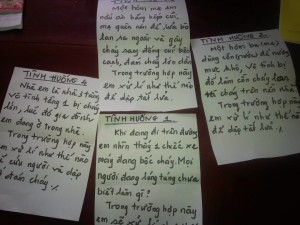 Một hôm mẹ em
nấu ăn bằng bếp củi,
mẹ quên nên để lửa bò
lan ra ngoài và gây
cháy
Trong trường hợp này
em xử lí như thế nào
để dập tắt lửa.
TÌNH HUỐNG 2
Một hôm ba (mẹ)
dùng cồn (rượu) để nướng
mực khô, Vô tình bị
đổ làm cồn cháy lan
Trong trường hợp này
em xử lí như thế nào
để dập tắt lửa.
TÌNH HUỐNG 4
Nhà em là nhà 3 tầng
vô tình tầng 1 bị cháy
lớn, lúc đó gia đình
em đang ở trong nhà.
Trong trường hợp này
em xử lí như thế nào
để cứu người và dập
đám cháy.
TÌNH HUỐNG 1
Khi đang đi trên đường
em nhìn thấy 1 chiếc xe
máy đang bốc cháy. Mọi
người đang lúng túng chưa
biết làm gì!
Trong trường hợp này
em sẽ xử lí như thế nào